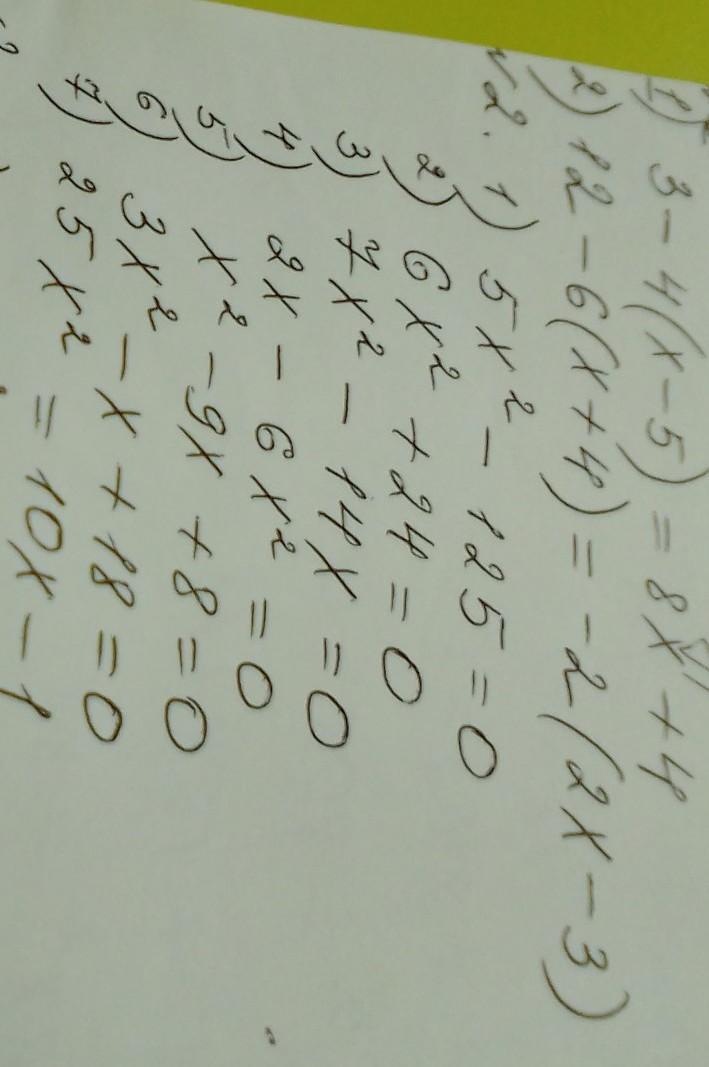 1) 3 - 4(x - 5) = 8x + 4
2) 12 - 6(x + 4) = -2(2x - 3)
√2. 1) 5x² - 125 = 0
2) 6x² + 24 = 0
3) 7x² - 14x = 0
4) 2x - 6x² = 0
5) x² - 9x + 8 = 0
6) 3x² - x + 18 = 0
7) 25x² = 10x - 1